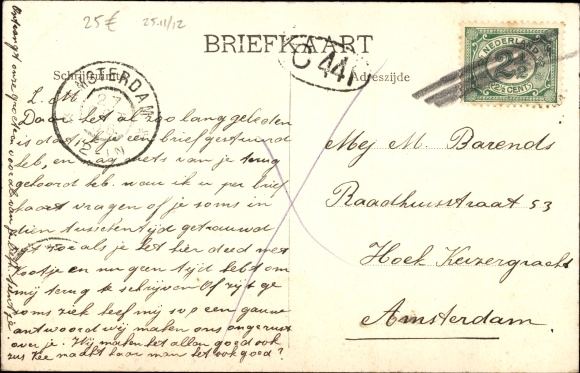 25€ 25.11/12
BRIEFKAART
Adreszijde
AMSTERDAM
C 441
NEDERLAND
2½
(2½ CENT)
L. M.
Daar het al zoo lang geleden
is dat ik je een brief gestuurd
heb, en nog niets van je terug
gehoord heb. wou ik u per brief
kaart vragen of je soms in
dien tusschentijd getrouwd
zoo als je het hier deed met
en nu geen tijd hebt om
mij terug te schrijven Of zijt ge
soms ziek heef mij s.v.p. een gauw
antwoord wij maken ons ongerust
over je. Wij maken het allen goed ook
zus Kee maakt haar man het ook goed?
Ontvangt onze groeten vooral van je
Mej M. Barends
Raadhuisstraat 53
Hoek Keizergracht
Amsterdam.